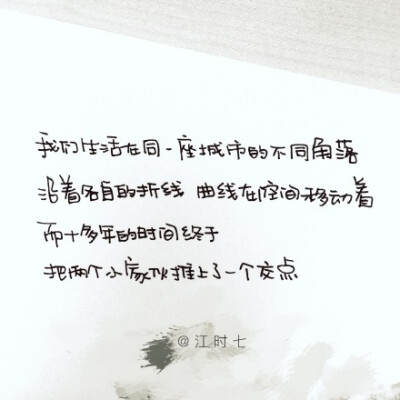 我们生活在同一座城市的不同角落
沿着各自的折线 曲线在空间移动着
而十多年的时间终于
把两个小家伙推上了一个交点
@江时七